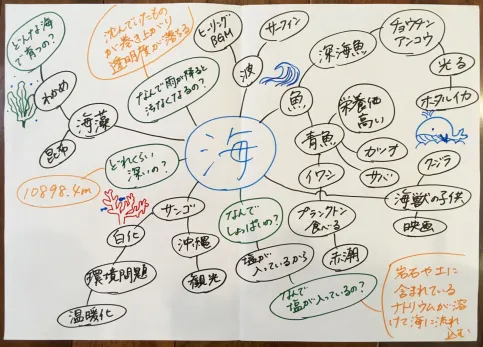 どんな海
で育つの?
わかめ
海藻
昆布
沈んでいたもの
が巻き上がり
透明度が落ちる
なんで雨が降ると
汚くなるの?
ヒーリング
BGM
サーフィン
波
海
深海魚
チョウチン
アンコウ
光る
ホタルイカ
魚
栄養価
高い
青魚
カツオ
サバ
イワシ
プランクトン
食べる
赤潮
クジラ
海獣の子供
映画
どれくらい
深いの?
10898.4m
サンゴ
白化
環境問題
温暖化
沖縄
観光
なんで
しょっぱいの?
塩が
入っているから
なんで
塩が入っているの?
岩石や土に
含まれている
ナトリウムが溶
けて海に流れ
込む